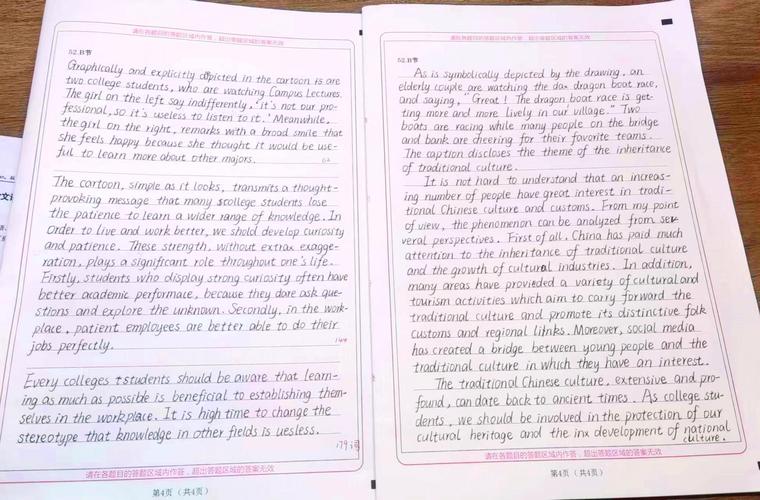 请在各题目的答题区域内作答，超出答题区域的答案无效
52.B节
Graphically and explicitly dipicted in the cartoon is are
two college students, who are watching Campus Lectures.
The girl on the left say indifferently, 'it's not our pro-
fessional, so it's useless to listen to it.' Meanwhile,
the girl on the right, remarks with a broad smile that
she feels happy because she thought it would be use-
ful to learn more about other majors.
62
The cartoon, simple as it looks, transmits a thought-
provoking message that many scollege students lose
the patience to learn a wider range of knowledge. In
order to live and work better, we shold develop curiosity
and patience. These strength, without extrax exagge-
ration, plays a significant role throughout one's life.
Firstly, students who display strong curiosity often have
better academic performace, because they dare ask que-
stions and explore the unknown. Secondly, in the work-
place, patient employees are better able to do their
jobs perfectly.
144
Every colleges students should be aware that learn-
ing as much as possible is beneficial to establishing them-
selves in the workplace. It is high time to change the
stereotype that knowledge in other fields is uesless.
179词
请在各题目的答题区域内作答，超出答题区域的答案无效
第4页（共4页）
请在各题目的答题区域内作答，超出答题区域的答案无效
52.B节
As is symbolically depicted by the drawing, an
elderly couple are watching the dax dragon boat race,
and saying, "Great! The dragon boat race is get-
ting more and more lively in our village." Two
boats are racing while many people on the bridge
and bank are cheering for their favorite teams.
The caption discloses the theme of the inheritance
of traditional culture.
It is not hard to understand that an increas-
ing number of people have great interest in tradi-
tional Chinese culture and customs. From my point
of view, the phenomenon can be analyzed from sev
veral perspectives. First of all, China has paid much
attention to the inheritance of traditional culture
and the growth of cultural industries. In addition,
many areas have provieded a variety of cultural and
tourism activities which aim to carry forward the
traditional culture and promote its distinctive folk
customs and regional links. Moreover, social media
has created a bridge between young people and the
traditional culture in which they have an interest.
The traditional Chinese culture, extensive and pro-
found, can date back to ancient times. As college stu-
dents, we should be involved in the protection of our
cultural heritage and the inx development of national
culture.
请在各题目的答题区域内作答，超出答题区域的答案无效
第4页（共4页）